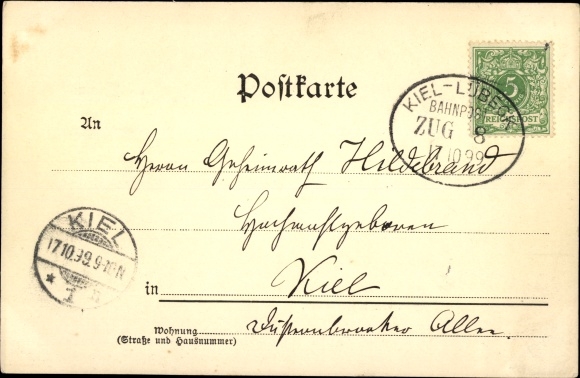 Postkarte
5
REICHSPOST
KIEL-LÜBECK
BAHNPOST
ZUG 8
17 10 99
An
Herrn Geheimrath Hildebrand
Hochwohlgeboren
KIEL
17.10.99.9-10N
* 1
in Kiel
Wohnung
(Straße und Hausnummer)
Düsternbrooker Allee.